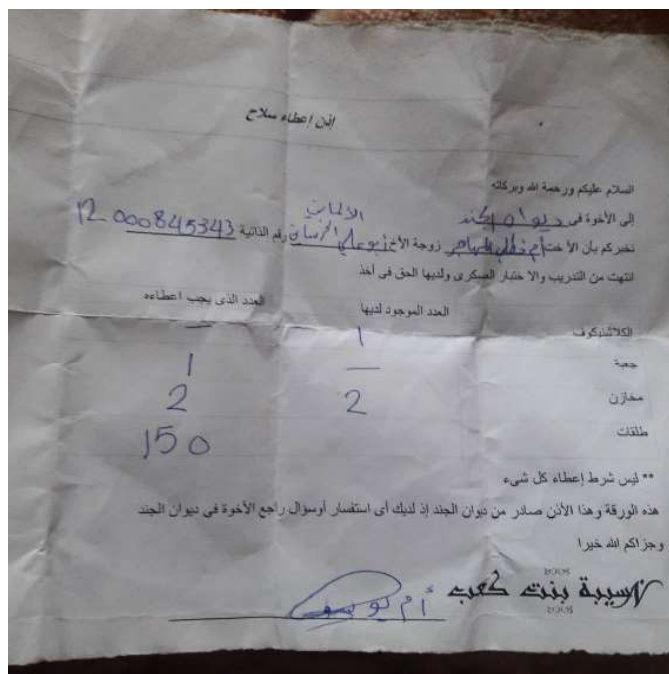 إذن إعطاء سلاح
السلام عليكم ورحمة الله وبركاته
الألماني
إلى الأخوة في ديوان الجند
نخبركم بأن الأخت أم المهاجر زوجة الأخ أبو علي رقم الذاتية 12000845343
انتهت من التدريب والاختبار العسكرى ولديها الحق فى أخذ
العدد الموجود لديها العدد الذى يجب اعطاءه
الكلاشنيكوف 1 —
جعبة — 1
مخازن 2 2
طلقات 150
** ليس شرط إعطاء كل شيء
هذه الورقة وهذا الأذن صادر من ديوان الجند إذ لديك أى استفسار أوسؤال راجع الأخوة فى ديوان الجند
وجزاكم الله خيرا
نسيبة بنت كعب
أم يوسف